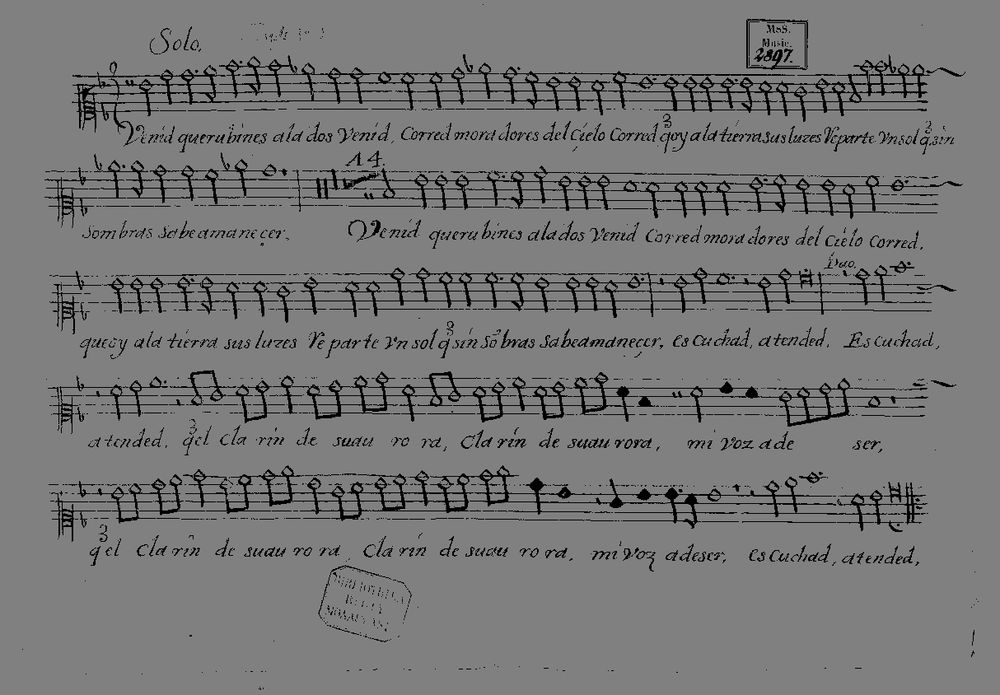 Solo.
Mss. Music. 2897.
Venid querubines alados Venid, Corred moradores del Cielo Corred q̃oy ala tierra sus luzes Ve parte Vn sol q̃ sin
A 4.
sombras sabe amaneçer. Venid querubines alados Venid Corred moradores del Cielo Corred.
Duo.
queoy ala tierra sus luzes Ve parte Vn sol q̃ sin sõbras sabe amaneçer, escuchad, atended. Escuchad,
atended. q̃ el Clarin de suau rora, Clarin de suau rora, mi voz ade ser,
q̃ el Clarin de suau rora, Clarin de suau rora, mi voz adeser, escuchad, atended,
BIBLIOTHECA
REGIA
MONACENSIS